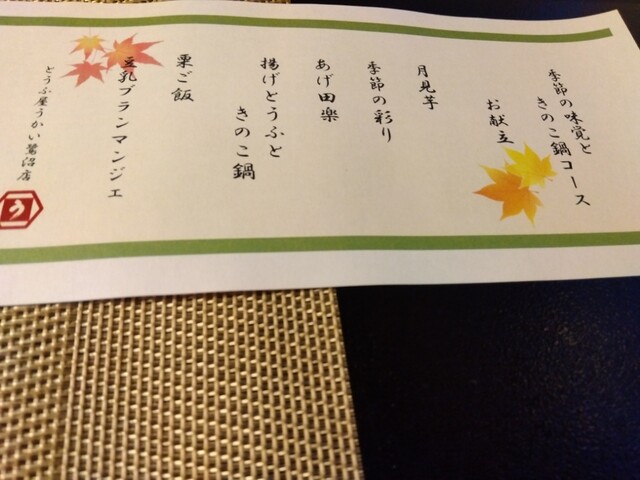 季節の味覚と
きのこ鍋コース
お献立
月見芋
季節の彩り
あげ田楽
揚げとうふと
きのこ鍋
栗ご飯
豆乳ブランマンジェ
とうふ屋うかい鷺沼店
う